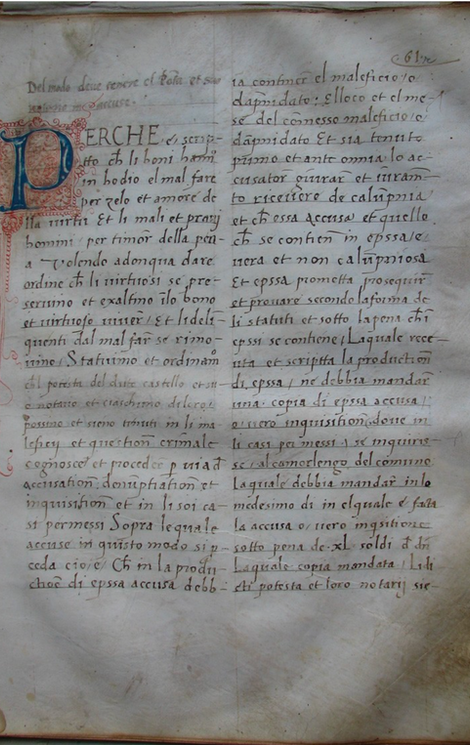 61
Del modo deve tenere el Pota et suo
notario in le accuse.
PERCHE e scrip-
tto ch li boni hanno
in hodio el mal fare
per zelo et amore de
lla virtu Et li mali et pravi
homini per timor della pen
a Volendo adonqua dare
ordine ch li virtuosi se pre-
servino et exaltino i lo bono
et virtuoso viver / Et li delin
quenti dal mal far se rimo-
vino / Statuimo et ordinam
chl potesta del dicto castello et su
o notaro et ciaschuno de loro
possino et sieno tinuti in li ma
leficii et question crimale
cognoscer et proceder p via d
accusation denuptiation et
inquisition et in li soi ca-
si permessi Sopra le quale
accuse in questo modo si p
ceda cio e Ch in la produ
ctione di epssa accusa debb
ia continer el maleficio o
dapnidato : El loco et el me
se del comesso maleficio o
dapnidato Et sia tinuto
primo et ante omnia lo ac
cusator giurar et iuram
to ricever de calupnia
et ch essa accusa et quello
ch se contien in epssa e
vera et non calupniosa
Et epssa prometta prosequir
et provare secondo la forma de
li statuti et sotto la pena ch i
epssi se contiene / La quale rece
vuta et scriptta la production
di epssa / ne debbia mandar
una copia di epssa accusa
o vero inquisition dove in
li casi permessi se inquiris
se / al camorlengo del comune
La quale debbia mandar in lo
medesimo di in el quale e facta
la accusa o vero inqsitione
sotto pena de XL soldi d dn
La quale copia mandata / Li di
cti potesta et loro notarii sie-